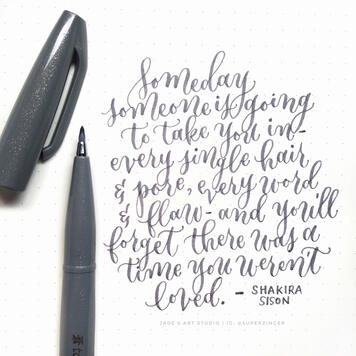 Someday
someone is going
to take you in-
every single hair
& pore, every word
& flaw-and you'll
forget there was a
time you weren't
loved. - SHAKIRA
SISON
JADE'S ART STUDIO | IG: @AUPERZINGER